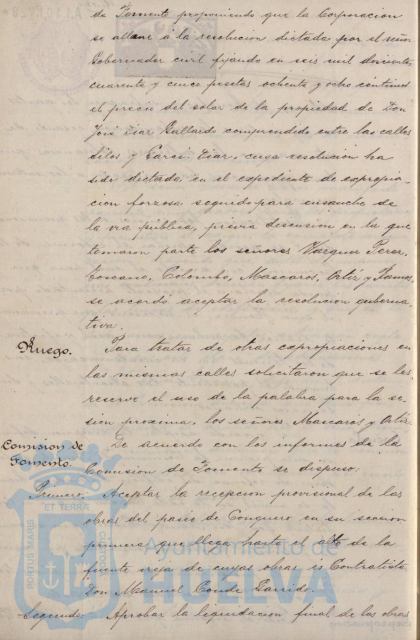 de Fomento proponiendo que la Corporacion
se allane á la resolucion dictada por el señor
Gobernador civil fijando en seis mil doscientas
cuarenta y cinco pesetas ochenta y ocho céntimos
el precio del solar de la propiedad de Don
José Diaz Gallardo comprendido entre las calles
Silos y Garci Diaz, cuya resolucion ha
sido dictada en el expediente de expropia-
cion forzosa seguido para ensanche de
la via pública, previa discusion en la que
tomaron parte los señores Vazquez Perez,
Toscano, Colombo, Mascaros, Ortiz y
se acordó aceptar la resolucion guberna-
tiva.
Ruego. Para tratar de otras expropiaciones en
las mismas calles solicitaron que se les
reserve el uso de la palabra para la se-
sion proxima, los señores Mascarós y Ortiz.
Comision de Fomento. De acuerdo con los informes de la
Comision de Fomento se dispuso:
Primero. Aceptar la recepcion provisional de las
obras del paseo de Conquero en su seccion
primera que llega hasta el alto de la
fuente vieja de cuyas obras es Contratista
Don Manuel Conde Garrido.
Segundo. Aprobar la liquidacion final de las obras
PORTUS MARIS ET TERRAE
Ayuntamiento de
HUELVA